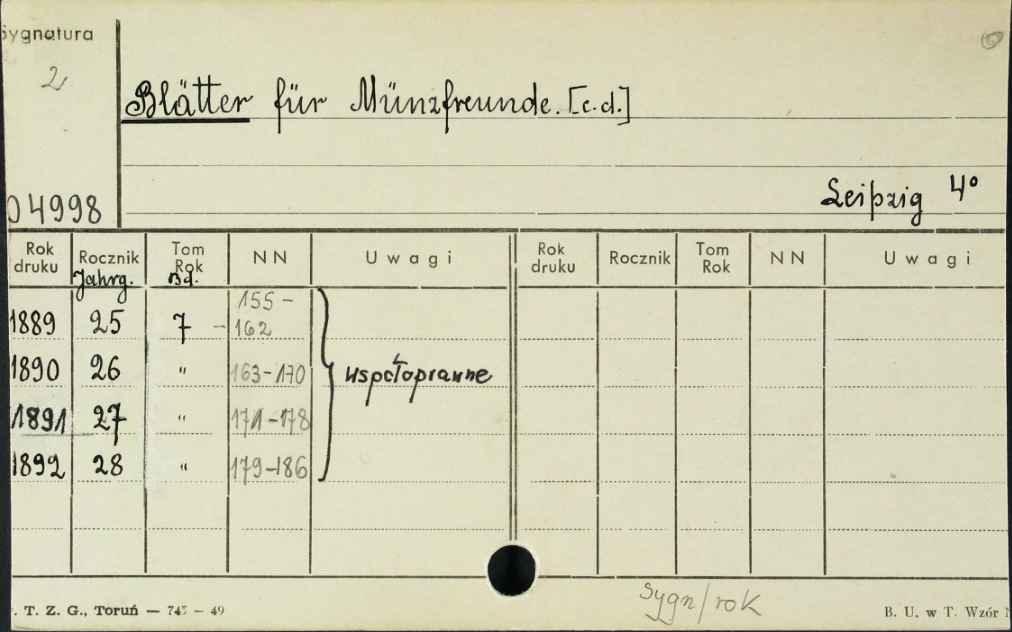 Sygnatura
2
Blätter für Münzfreunde. [c.d.]
Leipzig 4°
04998
Rok druku Rocznik Tom Rok N N U w a g i Rok druku Rocznik Tom Rok N N U w a g i
Jahrg. Bd.
1889 25 7 - 155 - 162
1890 26 " 163-170 współoprawne
1891 27 " 171-178
1892 28 " 179-186
. T. Z. G., Toruń — 745 — 49
Sygn/rok
B. U. w T. Wzór